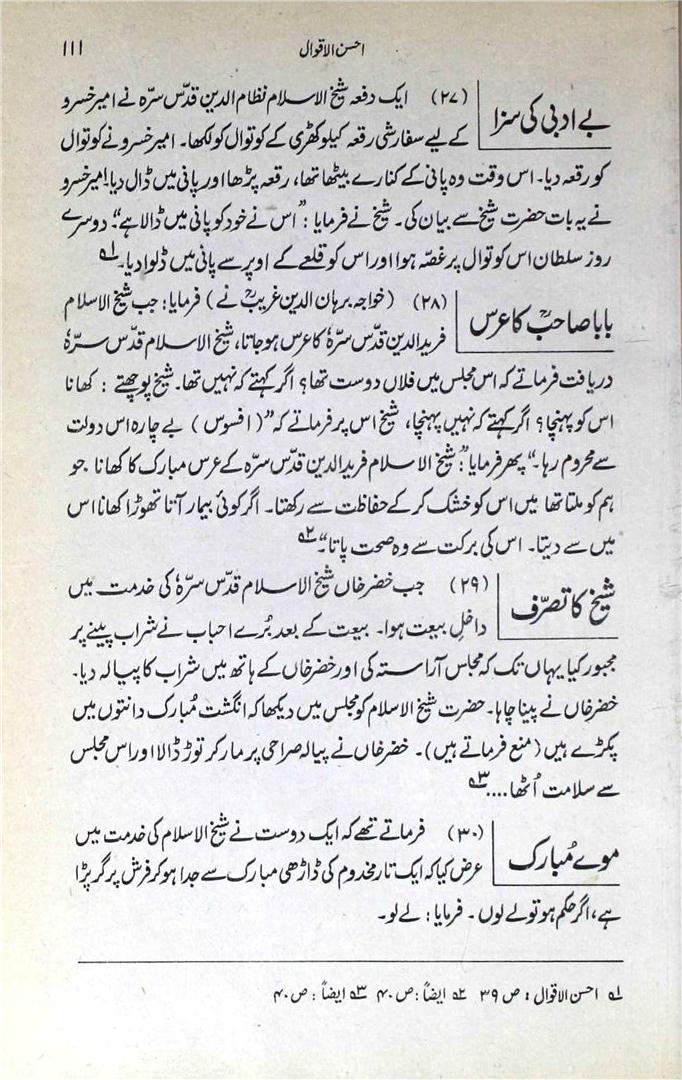 احسن الاقوال ۱۱۱
بے ادبی کی سزا
(۲۷) ایک دفعہ شیخ الاسلام نظام الدین قدّس سرّہ نے امیر خسرو
کے لیے سفارشی رقعہ کیلوکھڑی کے کوتوال کو لکھا۔ امیر خسرو نے کوتوال
کو رقعہ دیا۔ اس وقت وہ پانی کے کنارے بیٹھا تھا، رقعہ پڑھا اور پانی میں ڈال دیا۔ امیر خسرو
نے یہ بات حضرت شیخ سے بیان کی۔ شیخ نے فرمایا: "اس نے خود کو پانی میں ڈالا ہے"۔ دوسرے
روز سلطان اس کوتوال پر غصّہ ہوا اور اس کو قلعے کے اوپر سے پانی میں ڈلوا دیا۔ ؎۱
بابا صاحبؒ کا عرس
(۲۸) (خواجہ برہان الدین غریبؒ نے) فرمایا: جب شیخ الاسلام
فرید الدین قدّس سرّہٗ کا عرس ہو جاتا، شیخ الاسلام قدّس سرّہٗ
دریافت فرماتے کہ اس مجلس میں فلاں دوست تھا؟ اگر کہتے کہ نہیں تھا۔ شیخ پوچھتے: کھانا
اس کو پہنچا؟ اگر کہتے کہ نہیں پہنچا، شیخ اس پر فرماتے کہ "(افسوس) بے چارہ اس دولت
سے محروم رہا۔" پھر فرمایا: "شیخ الاسلام فرید الدین قدّس سرّہ کے عرس مبارک کا کھانا جو
ہم کو ملتا تھا میں اس کو خشک کر کے حفاظت سے رکھتا۔ اگر کوئی بیمار آتا تھوڑا کھانا اس
میں سے دیتا۔ اس کی برکت سے وہ صحت پاتا"۔ ؎۲
شیخ کا تصرّف
(۲۹) جب خضر خاں شیخ الاسلام قدّس سرّہٗ کی خدمت میں
داخلِ بیعت ہوا۔ بیعت کے بعد بُرے احباب نے شراب پینے پر
مجبور کیا یہاں تک کہ مجلس آراستہ کی اور خضر خاں کے ہاتھ میں شراب کا پیالہ دیا۔
خضر خاں نے پینا چاہا۔ حضرت شیخ الاسلام کو مجلس میں دیکھا کہ انگشت مُبارک دانتوں میں
پکڑے ہیں (منع فرماتے ہیں)۔ خضر خاں نے پیالہ صراحی پر مار کر توڑ ڈالا اور اس مجلس
سے سلامت اُٹھا.... ؎۳
موے مُبارک
(۳۰) فرماتے تھے کہ ایک دوست نے شیخ الاسلام کی خدمت میں
عرض کیا کہ ایک تار مخدوم کی ڈاڑھی مبارک سے جدا ہو کر فرش پر گر پڑا
ہے، اگر حکم ہو تو لے لوں۔ فرمایا: لے لو۔
؎۱ احسن الاقوال: ص ۳۹ ؎۲ ایضاً: ص ۴۰ ؎۳ ایضاً: ص ۴۰